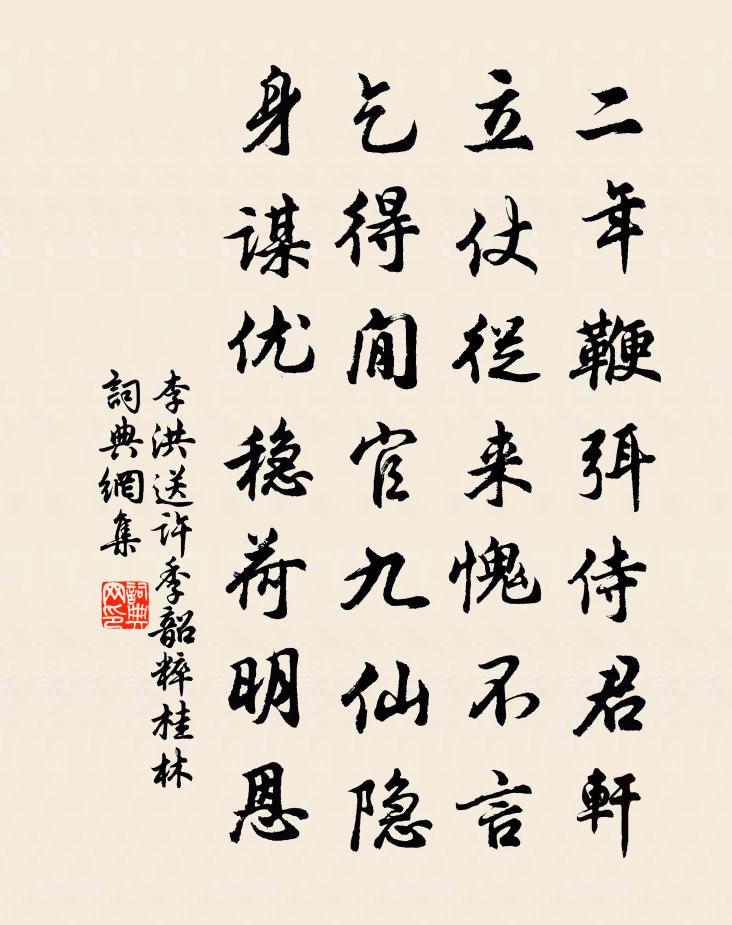 二年鞭弭侍君軒
立仗從来愧不言
乞得閒官九仙隐
身谋优稳荷明恩
李洪送許季韶粹桂林
詞典網集
詞典网印